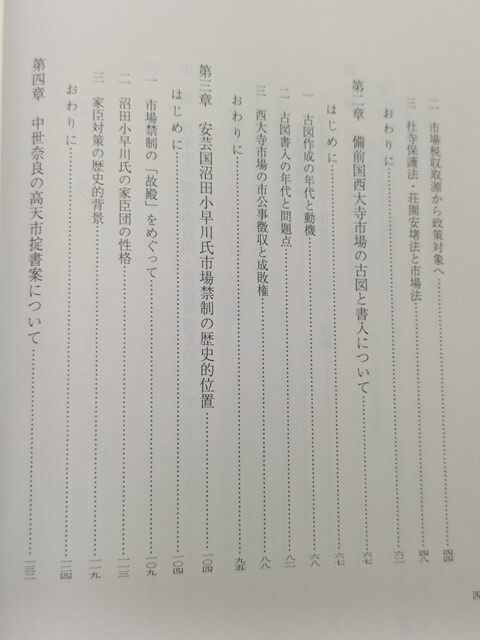 二　市場税収取源から政策対象へ……四四
三　社寺保護法・荘園安堵法と市場法……四八
おわりに……六二
第二章　備前国西大寺市場の古図と書入について……六七
はじめに……六七
一　古図作成の年代と動機……六八
二　古図書入の年代と問題点……八二
三　西大寺市場の市公事徴収と成敗権……八八
おわりに……九五
第三章　安芸国沼田小早川氏市場禁制の歴史的位置……一〇四
はじめに……一〇四
一　市場禁制の「故殿」をめぐって……一〇九
二　沼田小早川氏の家臣団の性格……一一三
三　家臣対策の歴史的背景……一一九
おわりに……一二四
第四章　中世奈良の高天市掟書案について……一三二
四